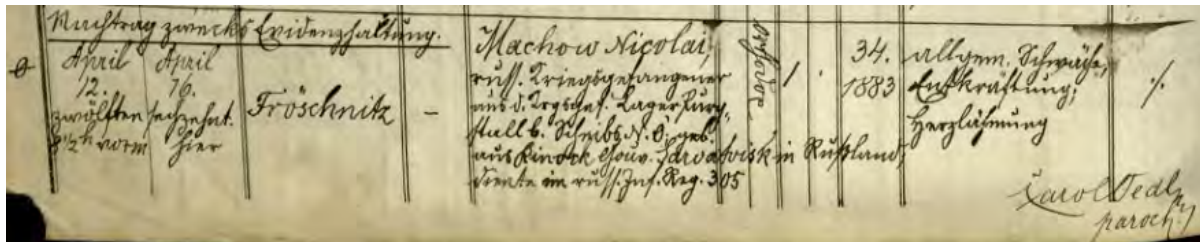 Nachtrag zwecks Evidenzhaltung.
April April
12. 16.
zwölften sechzehnt.
8 1/2 h vorm hier
Fröschnitz
–
Machow Nicolai,
russ. Kriegsgefangener
aus d. Krgsgef. Lager Purg-
stall b. Scheibbs N. Ö. geb.
aus Kinock Gouv. in Rußland,
diente im russ. Inf. Reg. 305
orthodox
1
34.
1883
allgem. Schwäche,
Entkräftung,
Herzlähmung
%
Carol Vedl
paroch.